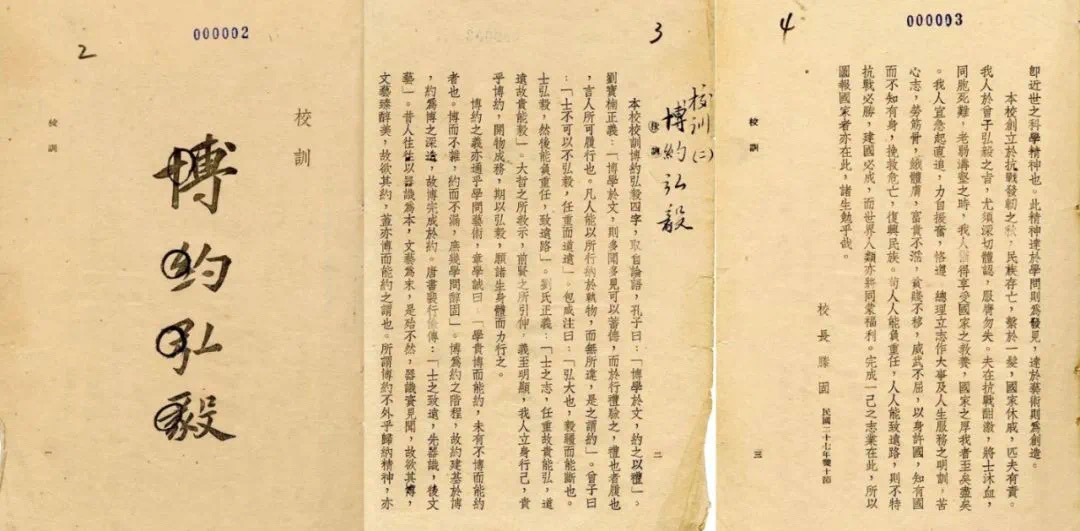 2
000002
校訓
博約弘毅
校訓
3
校訓(二)
博約弘毅
校訓
二
本校校訓博約弘毅四字，取自論語，孔子曰：「博學於文，約之以禮」。
劉寶楠正義：「博學於文，則多聞多見可以蓄德，而於行禮驗之，禮也者履也
，言人所可履行也。凡人能以所行納於軌物，而無所違，是之謂約」。曾子曰
：「士不可以不弘毅，任重而道遠」。包咸注曰：「弘大也，毅彊而能斷也。
士弘毅，然後能負重任，致遠路」。劉氏正義：「士之志，任重故貴能弘，道
遠故貴能毅」。大哲之所教示，前賢之所引伸，義至明顯，我人立身行己，貴
乎博約，開物成務，期以弘毅，願諸生身體而力行之。
博約之義亦通乎學問藝術，章學誠曰：「學貴博而能約，未有不博而能約
者也。博而不雜，約而不漏，庶幾學問醇固」。博爲約之階程，故約建基於博
，約爲博之深造，故博完成於約。唐書裴行儉傳：「士之致遠，先器識，後文
藝」。昔人往往以器識爲本，文藝爲末，是殆不然，器識見聞，故欲其博，
文藝臻醇美，故欲其約，蓋亦博而能約之謂也。所謂博約不外乎歸納精神，亦
4
000003
校訓
三
卽近世之科學精神也。此精神達於學問則爲發見，達於藝術則爲創造。
本校創立於抗戰發軔之秋，民族存亡，繫於一髮，國家休戚，匹夫有責。
我人於曾子弘毅之旨，尤須深切體認，服膺勿失。夫在抗戰酣激，將士沐血，
同胞死難，老弱溝壑之時，我人得享受國家之教養，國家之厚我者至矣盡矣
。我人宜急起直追，力自振奮，恪遵　總理立志作大事及人生服務之明訓，苦
心志，勞筋骨，餓體膚，富貴不淫，貧賤不移，威武不屈，以身許國，知有國
而不知有身，挽救危亡，復興民族。苟人人能負重任，人人能致遠路，則不特
抗戰必勝，建國必成，而世界人類亦將同蒙福利。完成一己之志業在此，所以
圖報國家者亦在此，諸生勉乎哉。
校長滕固　民國二十七年雙十節